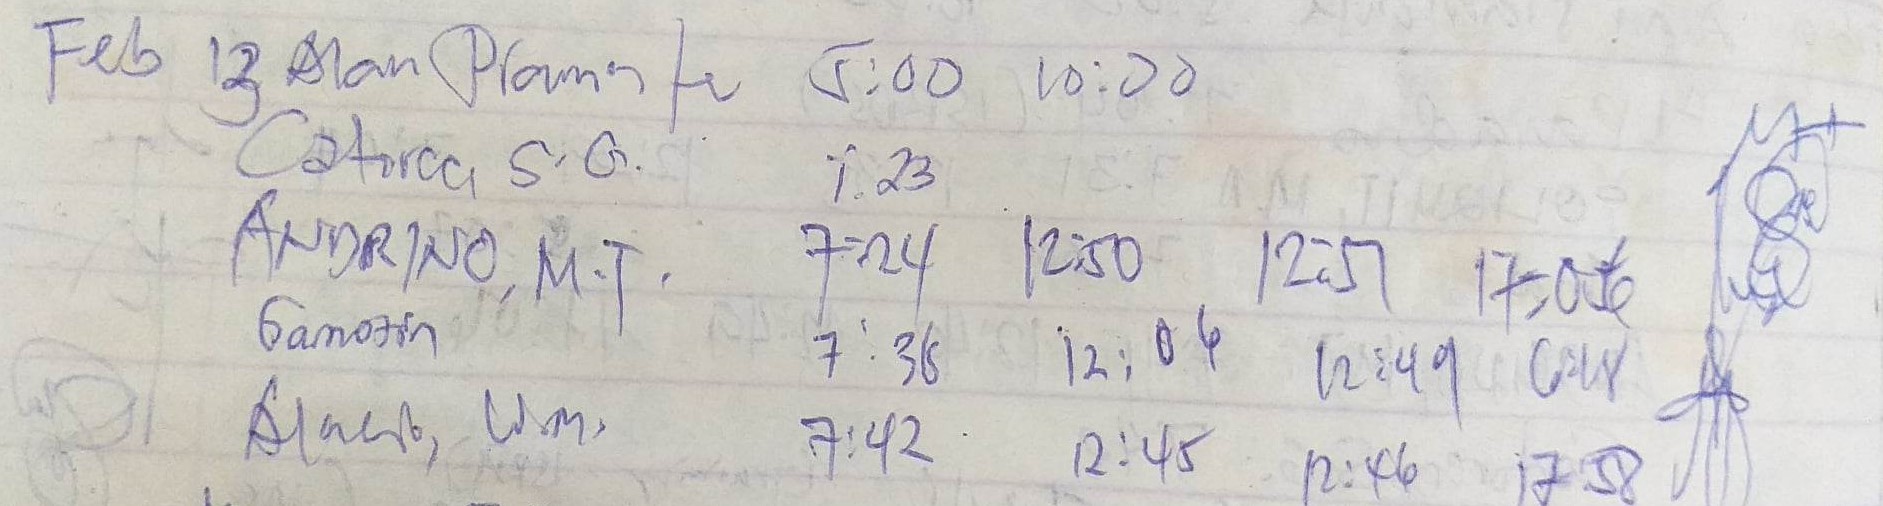 Feb 13 Alan Pramonte 5:00 10:00
Catorce S.G. 7:23
ANDRINO, M.T. 7:24 12:50 12:51 17:06
Gamozon 7:38 12:04 12:49 6:48
W.M. 7:42 12:45 12:46 17:58